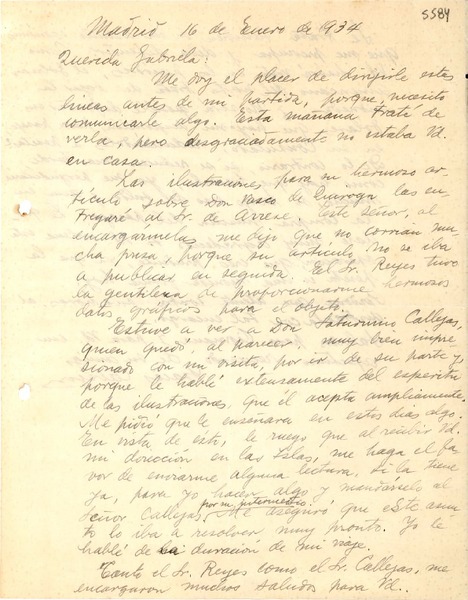 5584
Madrid 16 de Enero de 1934
Querida Gabriela:
Me doy el placer de dirigirle estas
líneas antes de mi partida, porque, necesito
comunicarle algo. Esta mañana traté de
verla, pero desgraciadamente no estaba Vd.
en casa.
Las ilustraciones para su hermoso ar-
tículo sobre Don Vasco de Quiroga las en-
tregaré al Sr. de Arrese. Este señor, al
encargármelas me dijo que no corrían mu-
cha prisa, porque su artículo no se iba
a publicar en seguida. El Sr. Reyes tuvo
la gentileza de proporcionarme hermosos
datos gráficos para el objeto.
Estuve a ver a Don Saturnino Callejas,
quien quedó, al parecer muy bien impre-
sionado con mi visita, por ir de su parte y
porque le hablé extensamente del espíritu
de las ilustraciones, que él acepta ampliamente.
Me pidió que le enseñara en estos días algo.
En vista de esto, le ruego que al recibir Vd.
mi dirección en las Islas, me haga el fa-
vor de enviarme alguna lectura, si la tiene
ya, para yo hacer algo y mandárselo al
señor Callejas, por su intermedio. Me aseguró que este asun-
to lo iba a resolver muy pronto. Yo le
hablé de la duración de mi viaje.
Tanto el Sr. Reyes como el Sr. Callejas, me
encargaron muchos saludos para Vd..